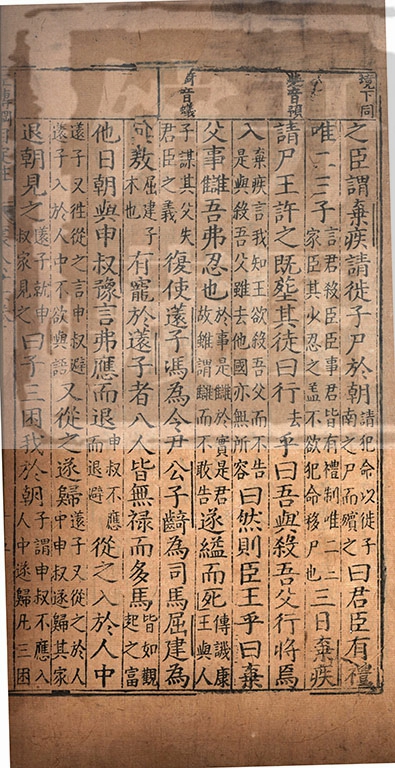 境下同
與音預
齮音蟻
之臣謂棄疾請徙子尸於朝請犯命以徙子南之尸而殯之曰君臣有禮
唯二三子言君殺臣臣事君皆有禮制唯二三家臣其少忍之盖不欲犯命移尸也三日棄疾
請尸王許之既塟其徒曰行去乎曰吾與殺吾父行將焉
入棄疾言我知王欲殺吾父而不告是與殺吾父雖去他國亦無所容曰然則臣王乎曰棄
父事讎吾弗忍也於事是讎於實是君故雖謂讎而不敢告遂縊而死傳譏康王與人
子謀其父失君臣之義復使薳子馮為令尹公子齮為司馬屈建為
敖屈建子木也有寵於薳子者八人皆無禄而多馬皆如觀起之富
他日朝與申叔豫言弗應而退申叔不應而退避從之入於人中
薳子又從之言申叔避薳子入於人中不欲與語又從之遂歸薳子又從之於人中申叔遂歸其家
退朝見之薳子就申叔家見之曰子三困我於朝子謂申叔不應入人中遂歸凡三困